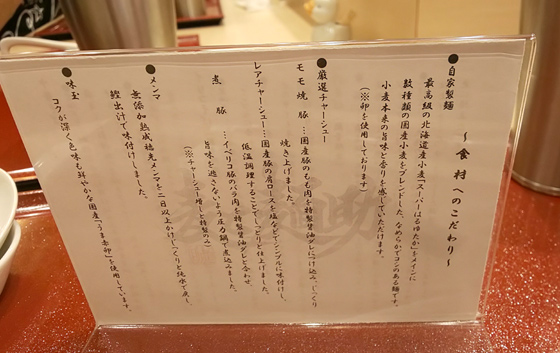 ～食材へのこだわり～
●自家製麺
最高級の北海道産小麦「スーパーはるゆたか」をメインに
数種類の国産小麦をブレンドした、なめらかでコシのある麺です。
小麦本来の旨味と香りを感じていただけます。
(※卵を使用しております)
●厳選チャーシュー
モモ焼豚…国産豚のもも肉を特製醤油ダレにつけ込み、じっくり
焼き上げました。
レアチャーシュー…国産豚の肩ロースを塩などでシンプルに味付けし、
低温調理することでしっとりと仕上げました。
煮豚…イベリコ豚のバラ肉を特製醤油ダレと合わせ、
旨味を逃さないよう圧力鍋で煮込みました。
(※チャーシュー増し・特製のみ)
●メンマ
無添加熟成穂先メンマを二日以上かけじっくりと純水で戻し、
鰹出汁で味付けしました。
●味玉
コクが深く色味も鮮やかな国産「うま赤卵」を使用しています。